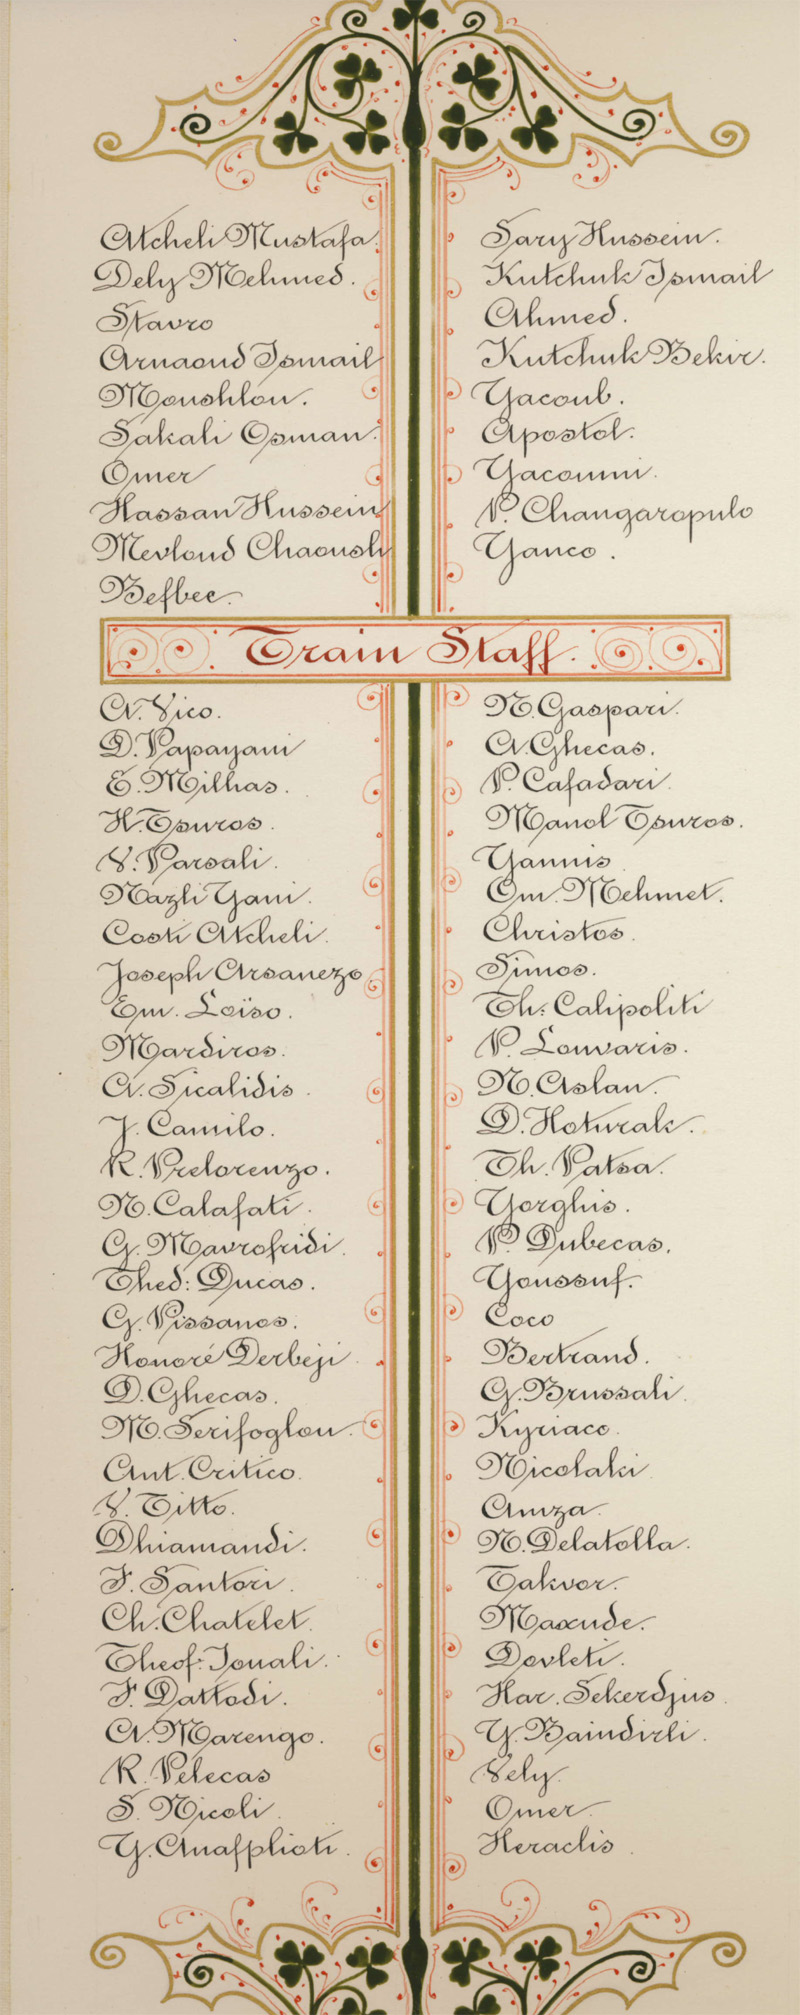 Atcheli Mustafa.
Dely Mehmed.
Stavro
Arnaoud Ismail
Moushlou.
Sakali Osman.
Omer
Hassan Hussein
Mevloud Chaoush
Befbec.
Sary Hussein.
Kutchuk Ismail
Ahmed.
Kutchuk Bekir.
Yacoub.
Apostol.
Yacoumi.
P. Changaropulo
Yanco.
Train Staff.
A. Vico.
D. Papayani
E. Milhas.
H. Tsuros.
V. Parsali.
Nazli Yani.
Costi Atcheli.
Joseph Arsanezo
Em. Loïso.
Mardiros.
A. Sicalidis.
J. Camilo.
R. Prelorenzo.
N. Calafati.
G. Mavrofridi.
Thed: Ducas.
G. Pissanos.
Honoré Derbeji.
D. Ghecas.
M. Serifoglou.
Ant. Critico.
V. Titto.
Dhiamandi.
F. Santori.
Ch. Chatelet.
Theof: Jouali.
F. Dattodi.
A. Marengo.
R. Pelecas
S. Nicoli.
Y. Anafplioti.
N. Gaspari.
A. Ghecas.
P. Cafadari.
Manol Tsuros.
Yannis
Om. Mehmet.
Christos.
Simos.
Th: Calipoliti
P. Louvaris.
N. Aslan.
D. Hoturak.
Th. Patsa.
Yorghis.
P. Dubecas.
Youssuf.
Coco
Bertrand.
G. Brussali.
Kyriaco.
Nicolaki
Amza.
N. Delatolla.
Takvor.
Maxude.
Dovleti.
Har. Sekerdjus.
Y. Baindirli.
Vely.
Omer.
Heraclis.